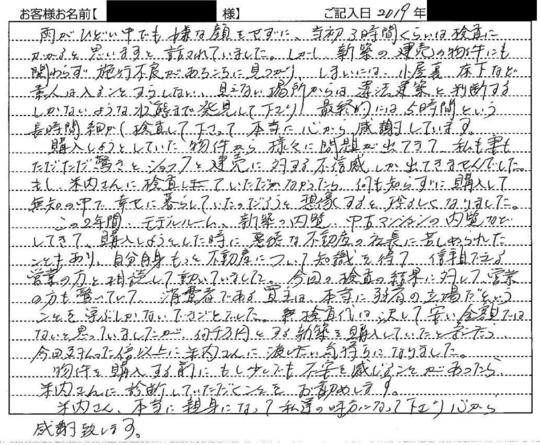 お客様お名前【 様】 ご記入日 2019
雨がひどい中でも嫌な顔をせずに、当初3時間くらいは検査に
かかると思いますと話されていました。しかし新築の建売の物件にも
関わらず施行不良があちこちに見つかり、しまいには、小屋裏、床下など
素人は入ることすらしない、見えない場所からは違法建築と判断する
しかないような状態まで発見して下さり、最終的には5時間という
長時間細かく検査して下さって本当に心から感謝しています。
購入しようとしていた物件から様々に問題が出てきて、私も妻も
ただただ驚きとショックと建売に対する不信感しか出てきませんでした。
もし米内さんに検査していただかなかったら、何も知らずに購入して
無知の中で幸せに暮らしていっただろうと想像すると恐ろしくなりました。
この2年間、モデルルーム、新築の内覧、中古マンションの内覧など
してきて、購入しようとした時に悪徳な不動産の社長に苦しめられた
こともあり、自分自身もっと不動産について知識を得て信頼できる
営業の方と相談して動いていました。今回の検査の結果に対して営業
の方も驚いていて、消費者である買主は本当に弱者の立場だという
ことを学ぶしかないできごとでした。検査代は決して安い金額では
ないと思っていましたが、何千万円とする新築を購入していたと思ったら
今回支払った倍以上に米内さんに渡したい気持ちになりました。
物件を購入する前にもし少しでも不安を感じることがあったら
米内さんに診断していただくことをお勧めします。
米内さん、本当に親身になって私達の味方になって下さり心から
感謝致します。